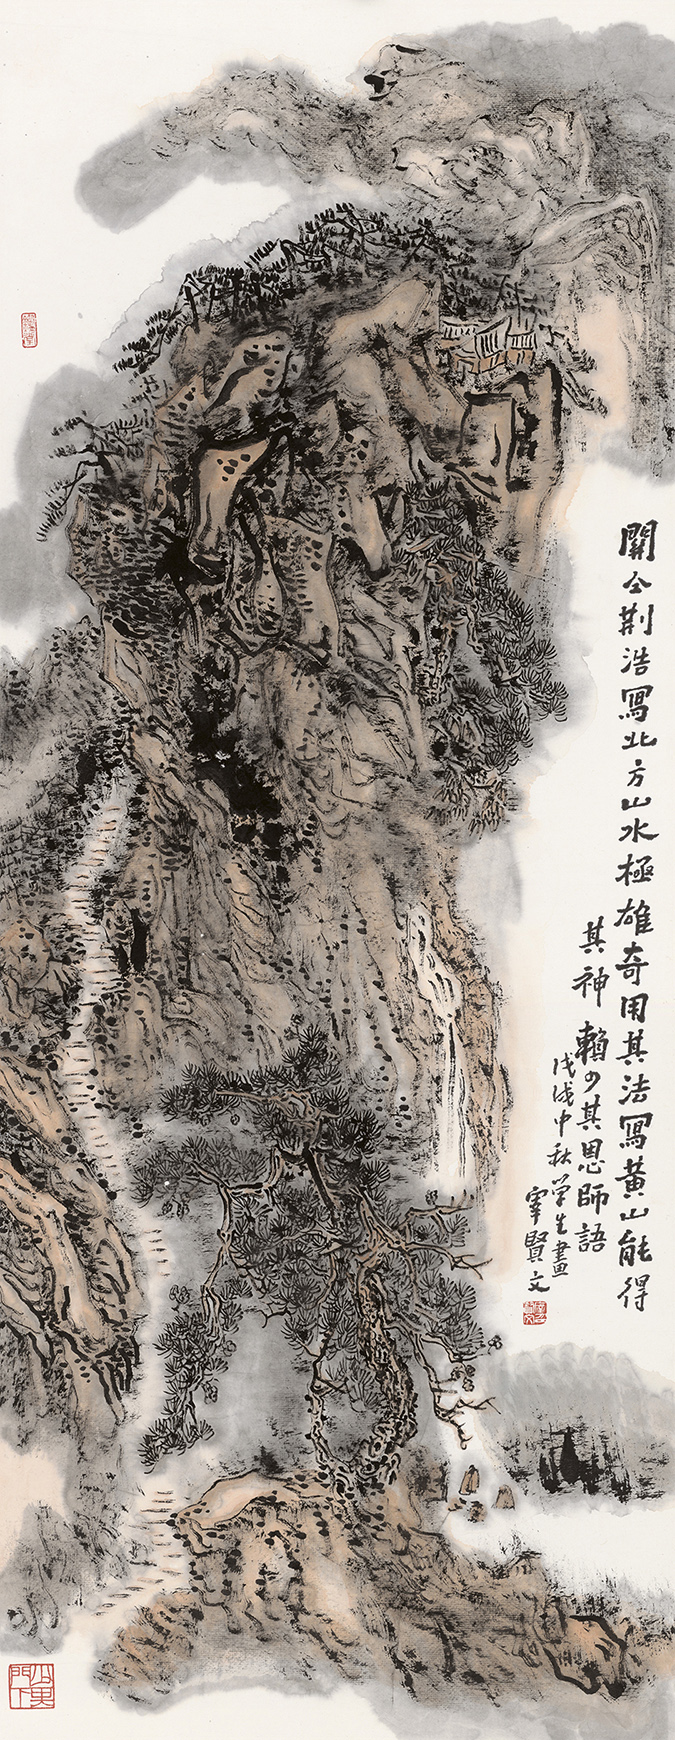 關仝荆浩寫北方山水極雄奇用其法寫黄山能得
其神 賴少其恩師語
戊戌中秋学生畫
宰賢文
少其門下